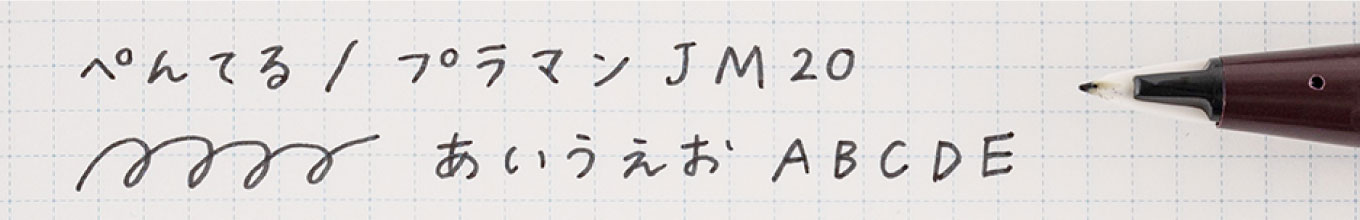 ぺんてる / プラマン JM20
あいうえお ABCDE